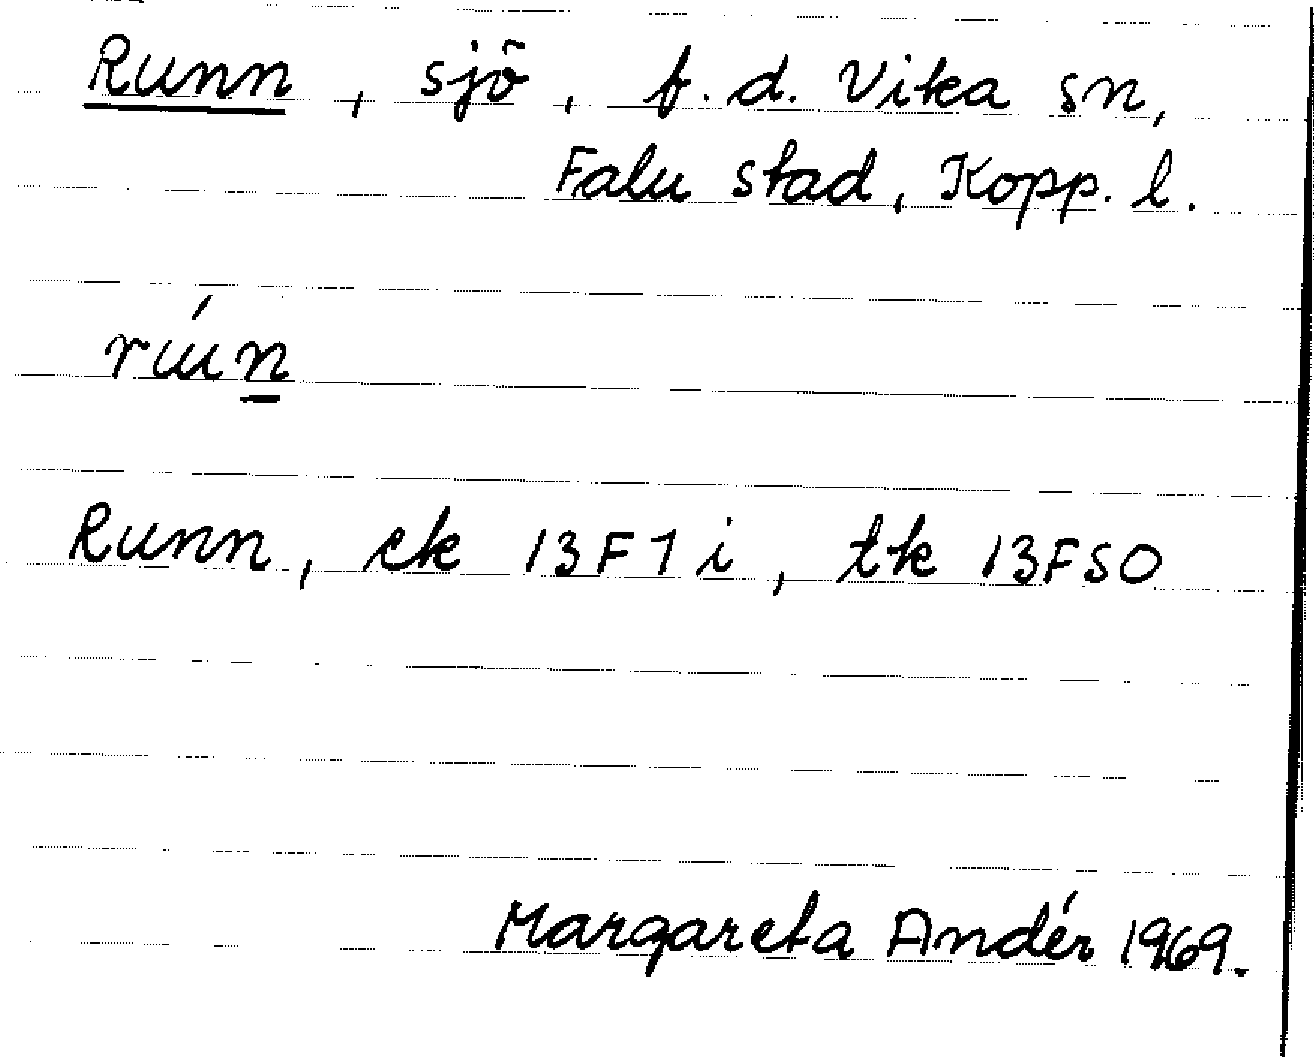 Runn, sjö, f.d. Vika sn,
Falu stad, Kopp. l.
rúun
Runn, ek 13F1i, tk 13FSO
Margareta Andér 1969.